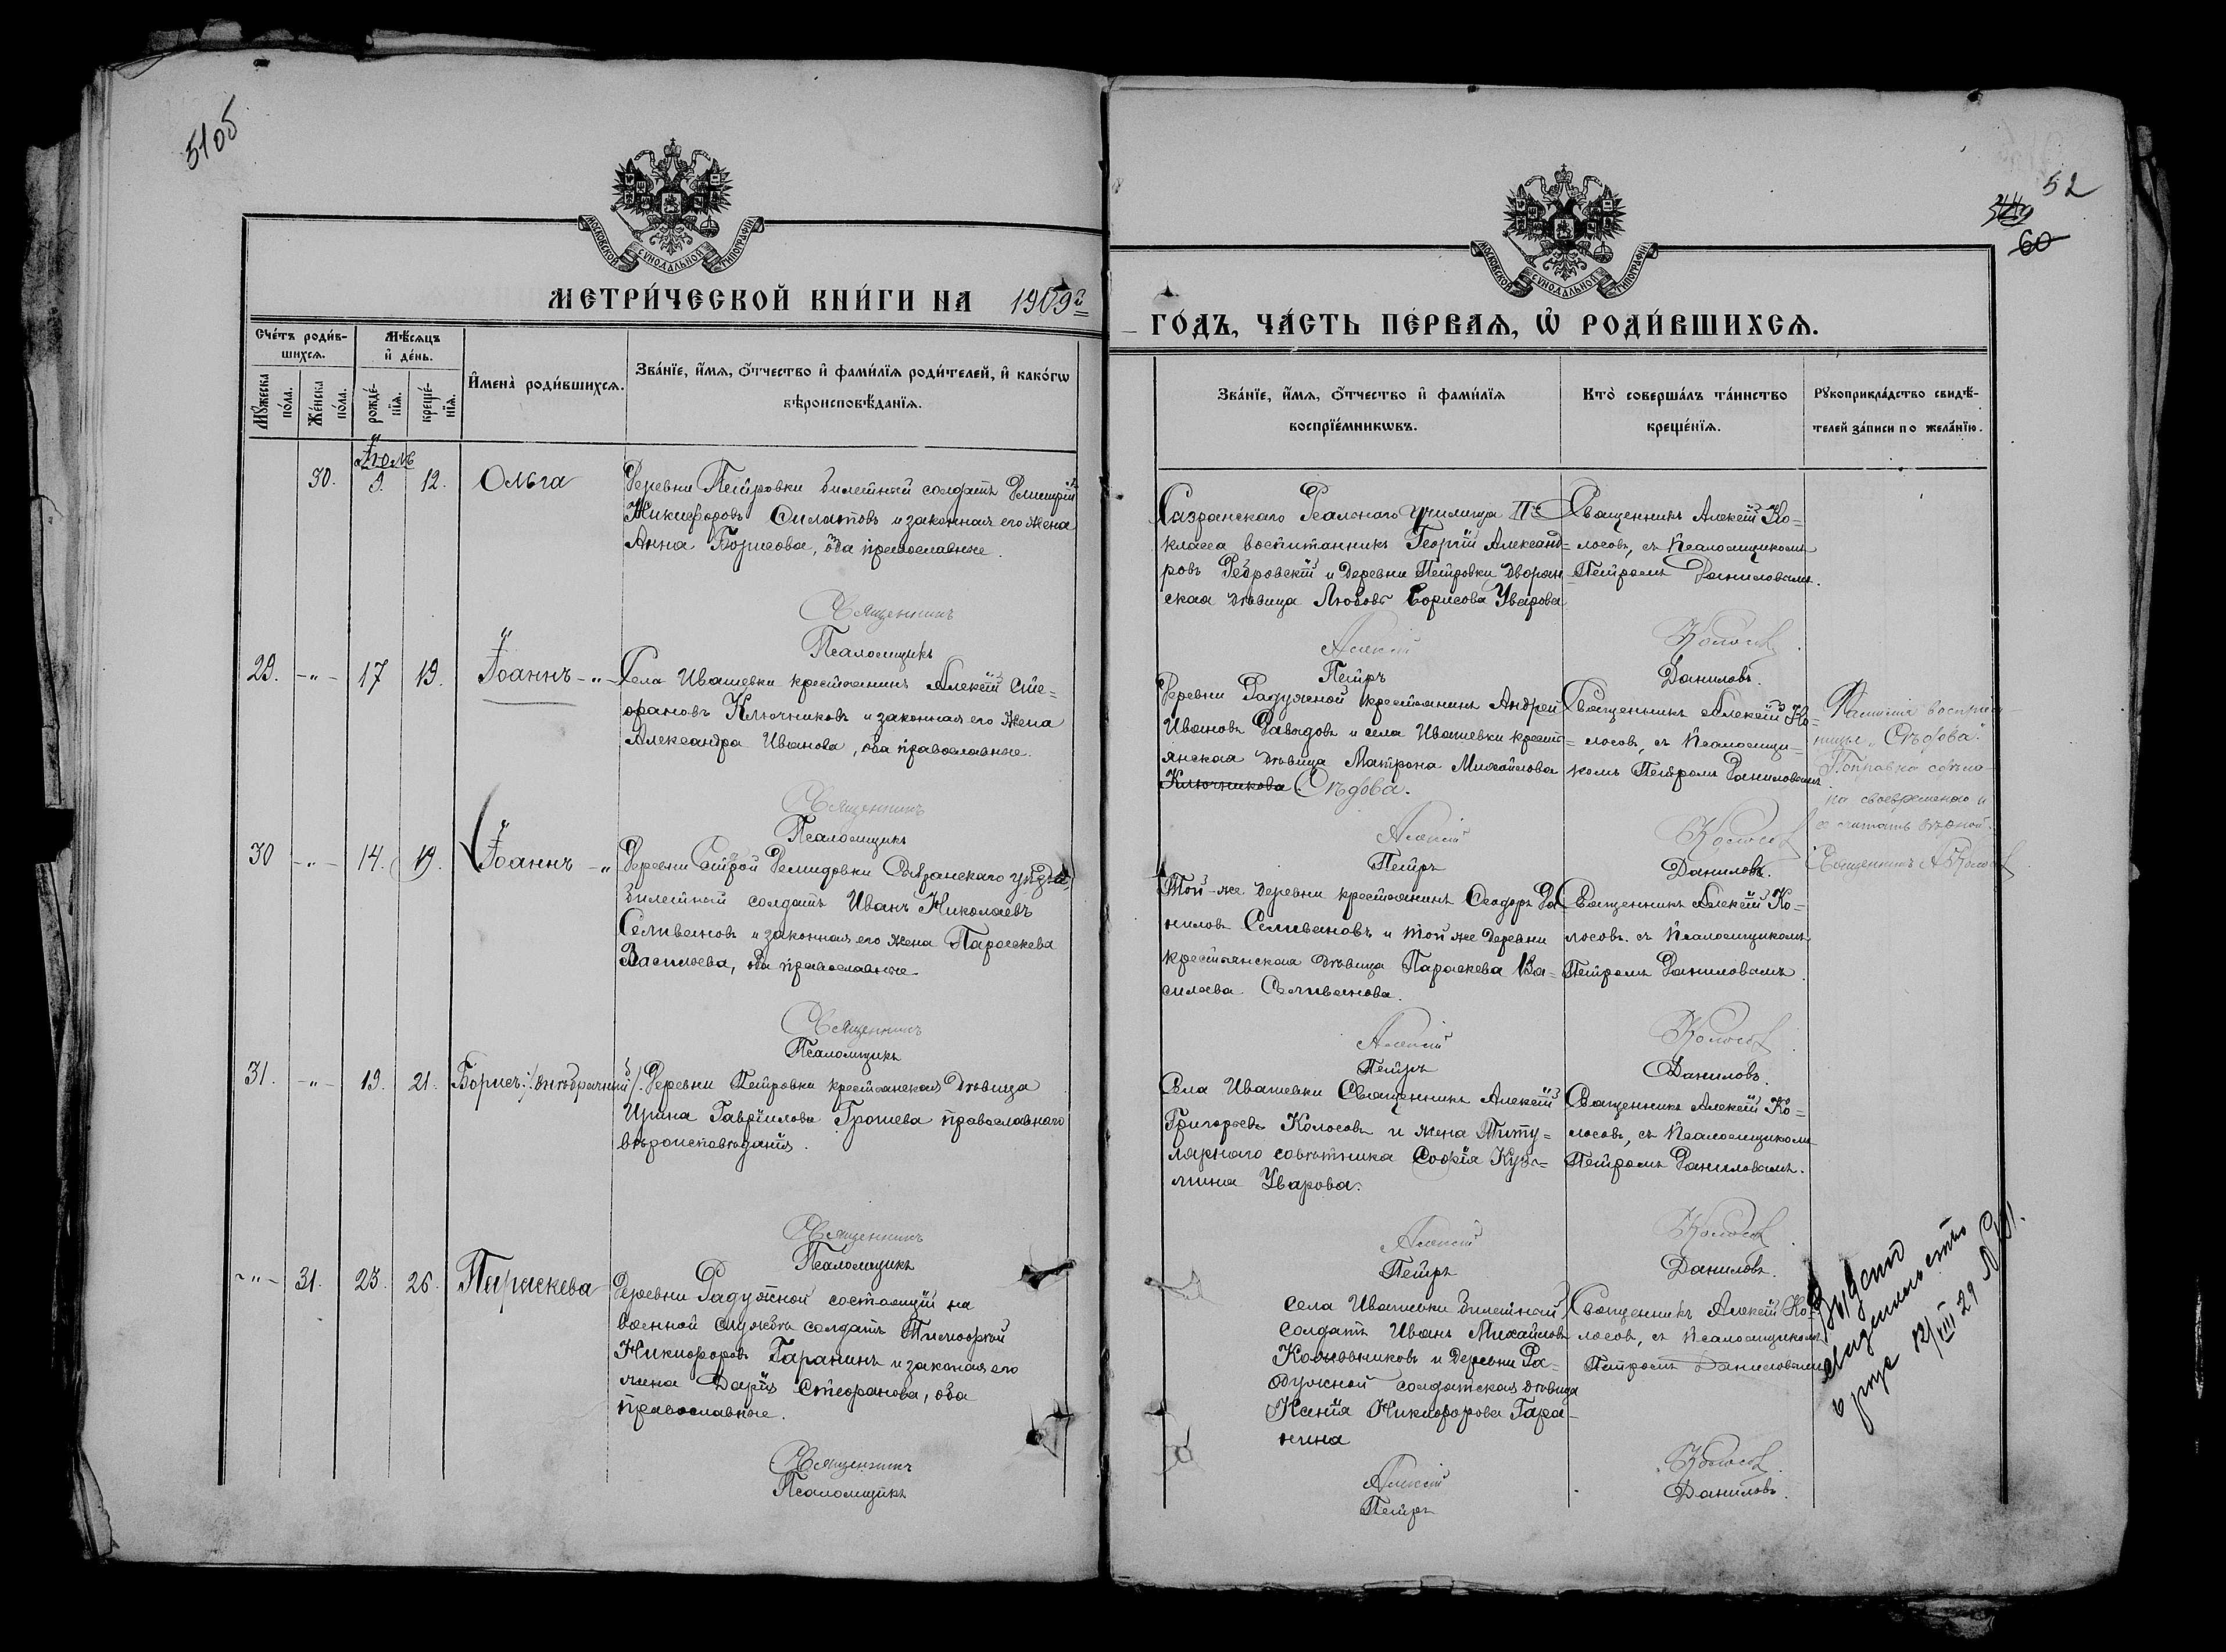 51об
МОСКОВСКОЙ СѴНОДАЛЬНОЙ ТИПОГРАФІИ
МЕТРИ́ЧЕСКОЙ КНИ́ГИ НА 1909й
Сче́тъ роди́в-
шихся.
Мѣ́сяцъ
и҆ де́нь.
И҆мена̀ роди́вшихся.
Зва́нїе, и҆́мя, ѻ҆́тчество и҆ фами́лїя роди́телей, и҆ како́гѡ
вѣроисповѣ́данїя.
Мꙋ́жеска
по́ла.
Же́нска
по́ла.
рожде́-
нїя.
креще́-
нїя.
Іюль
30. 9. 12. Ольга
Деревни Петровки билетный солдатъ Димитрій
Никифоровъ Силатовъ и законная его жена
Анна Борисова, оба православные.
Священникъ
Псаломщикъ
29. -"- 17 19. Іоаннъ -"-
Села Ивашевки крестьянинъ Алексій Сте-
фановъ Ключниковъ и законная его жена
Александра Иванова, оба православные.
Священникъ
Псаломщикъ
30 -"- 14. 19. Іоаннъ -"-
Деревни Старой Демидовки Сызранскаго уѣзда
билетный солдатъ Иванъ Николаевъ
Селивановъ и законная его жена Параскева
Васильева, оба православные.
Священникъ
Псаломщикъ
31. -"- 19. 21. Борисъ /внѣбрачный/.
Деревни Петровки крестьянская дѣвица
Ирина Гавріилова Грошева православнаго
вѣроисповѣданія.
Священникъ
Псаломщикъ
-"- 31. 23. 26. Параскева
Деревни Радужной состоящій на
военной службѣ солдатъ Тимофей
Никифоровъ Гаранинъ и законая его
жена Дарія Стефанова, оба
православные.
Священникъ
Псаломщикъ
52
60
МОСКОВСКОЙ СѴНОДАЛЬНОЙ ТИПОГРАФІИ
ГО́ДЪ, ЧА́СТЬ ПЕ́РВАЯ, Ѡ҆ РОДИ́ВШИХСЯ.
Зва́нїе, и҆́мя, ѻ҆́тчество и҆ фами́лїя
воспрїе́мникѡвъ.
Кто̀ соверша́лъ та́инство
креще́нїя.
Рꙋкоприкла́дство свидѣ́-
телей за́писи по жела́нїю.
Сызранскаго Реальнаго Училища
класса воспитанникъ Георгій Александ-
ровъ Ребровскій и деревни Петровки дворян-
ская дѣвица Любовь Борисова Уварова
Священникъ Алексій Ко-
лосовъ, съ псаломщикомъ
Петромъ Даниловымъ.
Алексій Колосовъ.
Петръ Даниловъ.
Деревни Радужной крестьянинъ Андрей
Ивановъ Давыдовъ и села Ивашевки кресть-
янская дѣвица Матрона Михайлова
Ключникова Сѣдова.
Священникъ Алексій Ко-
лосовъ, съ псаломщи-
комъ Петромъ Даниловымъ
"Сѣдова".
Поправка сдѣла-
на своевременно и
ее считать вѣрной.
Священникъ А Колосовъ
Алексій Колосовъ
Петръ Даниловъ.
Той-же деревни крестьянинъ Ѳеодоръ Да-
ниловъ Селивановъ и той же деревни
крестьянская дѣвица Параскева Ва-
сильева Селиванова.
Священникъ Алексій Ко-
лосовъ. съ псаломщикомъ
Петромъ Даниловымъ.
Алексій Колосовъ.
Петръ Даниловъ.
Села Ивашевки Священникъ Алексій
Григорьевъ Колосовъ и жена Титу-
лярнаго совѣтника Софія Кузь-
мина Уварова.
Священникъ Алексій Ко-
лосовъ, съ псаломщикомъ
Петромъ Даниловымъ.
Алексій Колосовъ.
Петръ Даниловъ.
Села Ивашевки билетный
солдатъ Иванъ Михайловъ
и деревни Ра-
дужной солдатская дѣвица
Ксенія Никифорова Гара-
нина
Священникъ Алексій Ко-
лосовъ, съ псаломщикомъ
Петромъ Даниловымъ
Выдано
свидетельство
12/VIII 29
Алексій Колосовъ.
Петръ Даниловъ.